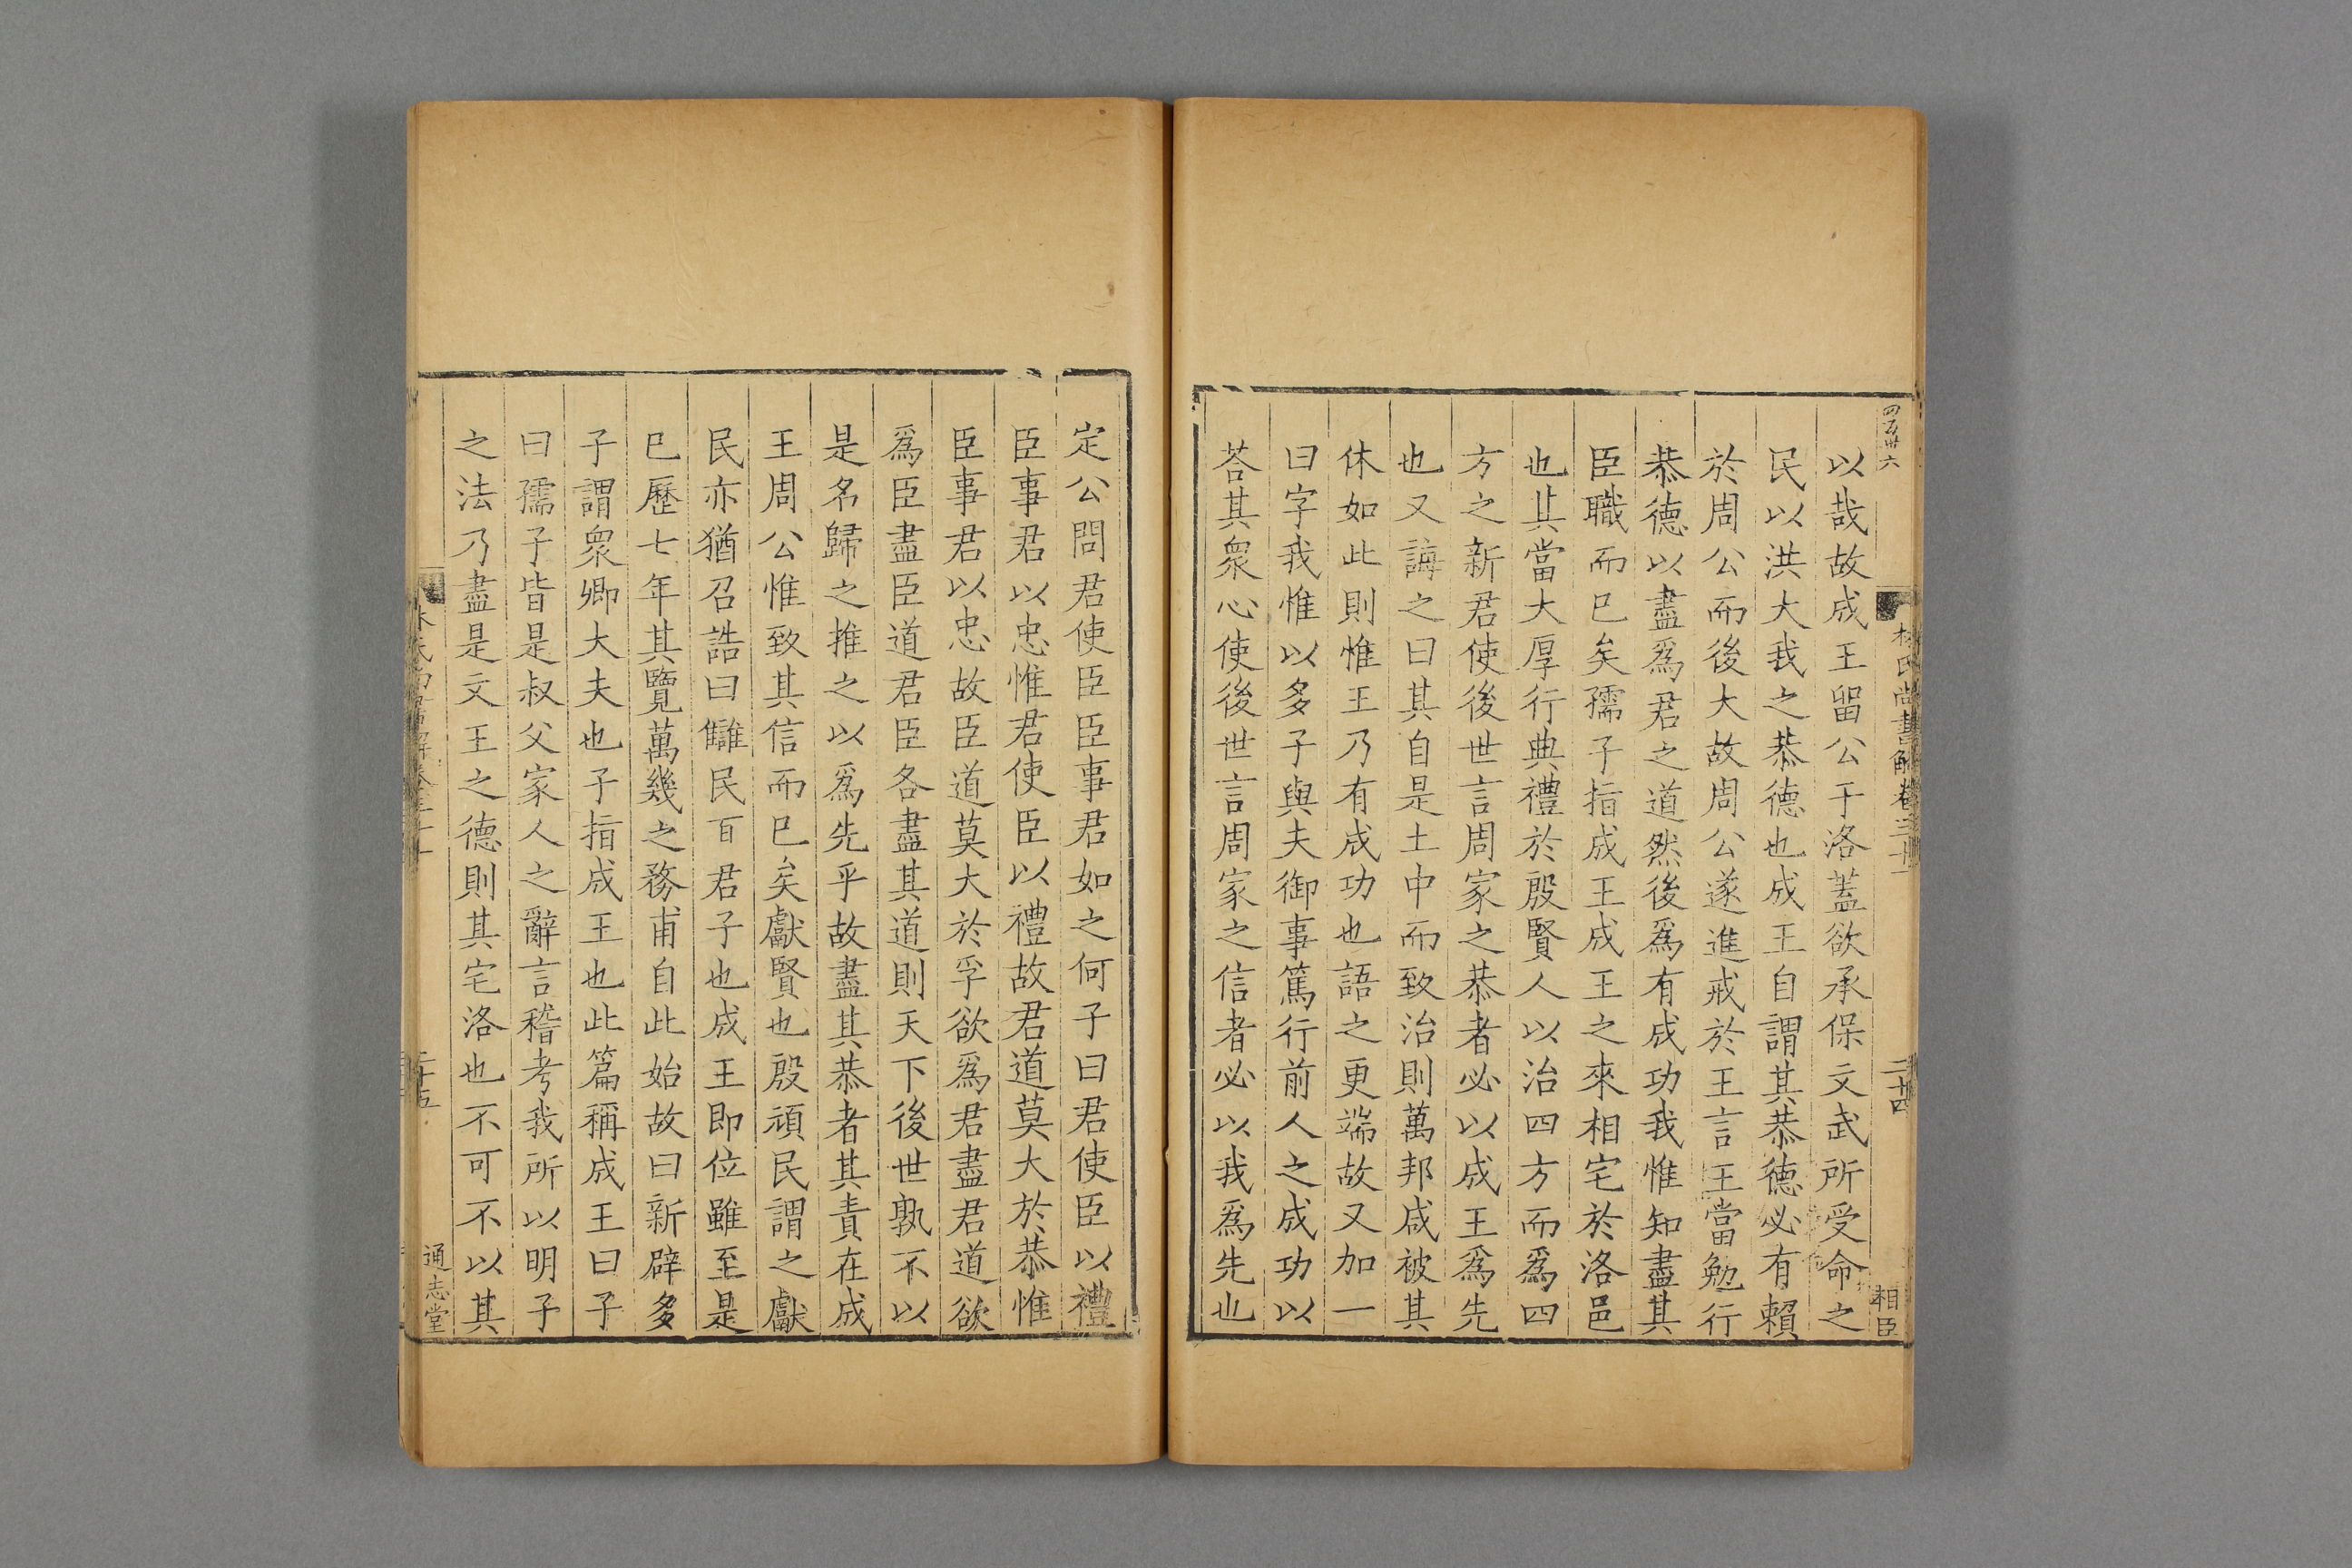 四百卅六
林氏尚書解卷三十一
二十四
相臣
以哉故成王留公于洛蓋欲承保文武所受命之
民以洪大我之恭德也成王自謂其恭德必有賴
於周公而後大故周公遂進戒於王言王當勉行
恭德以盡爲君之道然後爲有成功我惟知盡其
臣職而已矣孺子指成王成王之來相宅於洛邑
也其當大厚行典禮於殷賢人以治四方而爲四
方之新君使後世言周家之恭者必以成王爲先
也又誨之曰其自是土中而致治則萬邦咸被其
休如此則惟王乃有成功也語之更端故又加一
曰字我惟以多子與夫御事篤行前人之成功以
荅其衆心使後世言周家之信者必以我爲先也
定公問君使臣臣事君如之何子曰君使臣以禮
臣事君以忠惟君使臣以禮故君道莫大於恭惟
臣事君以忠故臣道莫大於孚欲爲君盡君道欲
爲臣盡臣道君臣各盡其道則天下後世孰不以
是名歸之推之以爲先乎故盡其恭者其責在成
王周公惟致其信而已矣獻賢也殷頑民謂之獻
民亦猶召誥曰讎民百君子也成王即位雖至是
已歷七年其覽萬幾之務甫自此始故曰新辟多
子謂衆卿大夫也子指成王也此篇稱成王曰子
曰孺子皆是叔父家人之辭言稽考我所以明子
之法乃盡是文王之德則其宅洛也不可不以其
二十五
通志堂